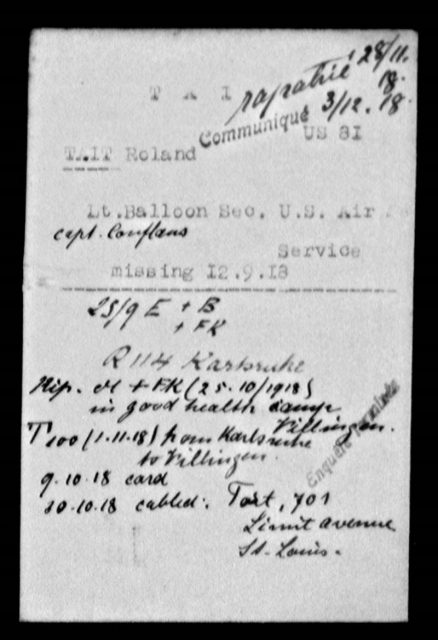 T A I
rapatrié 28/11.
18.
Communiqué 3/12.18.
US 81
TAIT Roland
Lt.Balloon Sec. U.S. Air
capt. Conflans
Service
missing 12.9.18
25/9 E + B
+ FK
R 114 Karlsruhe
+ FK (25.10/1918)
in good health camp
Villingen.
T 100 (1.11.18) from Karlsruhe
to Villingen.
9.10.18 card
cabled: 701
Limit avenue
St. Louis.
Enquête